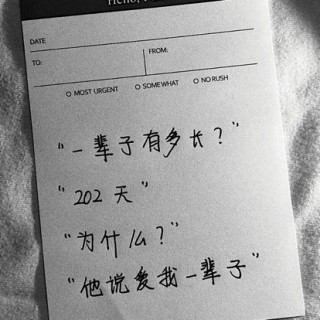 DATE
TO:
FROM:
MOST URGENT
SOMEWHAT
NO RUSH
“一辈子有多长？”
“202天”
“为什么？”
“他说爱我一辈子”